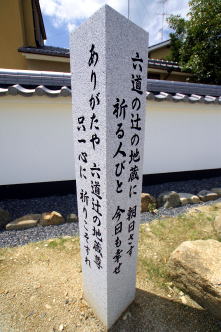 六道の辻の地蔵に 朝日さす
祈る人びと 今日も幸せ
ありがたや 六道辻の地蔵尊
只一心に 祈りこそすれ